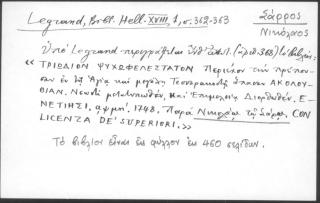 Legrand, Bibl. Hell. XVIII, 1, σ. 362-363
Σάρρος
Νικόλαος
Ὑπὸ Legrand περιγράφεται
"ΤΡΙΩΔΙΟΝ ΨΥΧΩΦΕΛΕΣΤΑΤΟΝ Περιέχον τὴν πρέπου-
σαν ἐν τῇ Ἁγίᾳ καὶ μεγάλῃ Τεσσαρακοστῇ ἅπασαν ΑΚΟΛΟΥ-
ΘΙΑΝ. Νεωστὶ μετατυπωθὲν, καὶ Ἐπιμελείᾳ Διορθωθέν, Ε-
ΝΕΤΙΗΣΙ, αψμη', 1748. Παρὰ Νικολάῳ τῷ Σάρῳ. CON
LICENZA DE' SUPERIORI.»
Τὸ βιβλίον εἶναι εἰς φύλλον ἐκ 460 σελίδων.